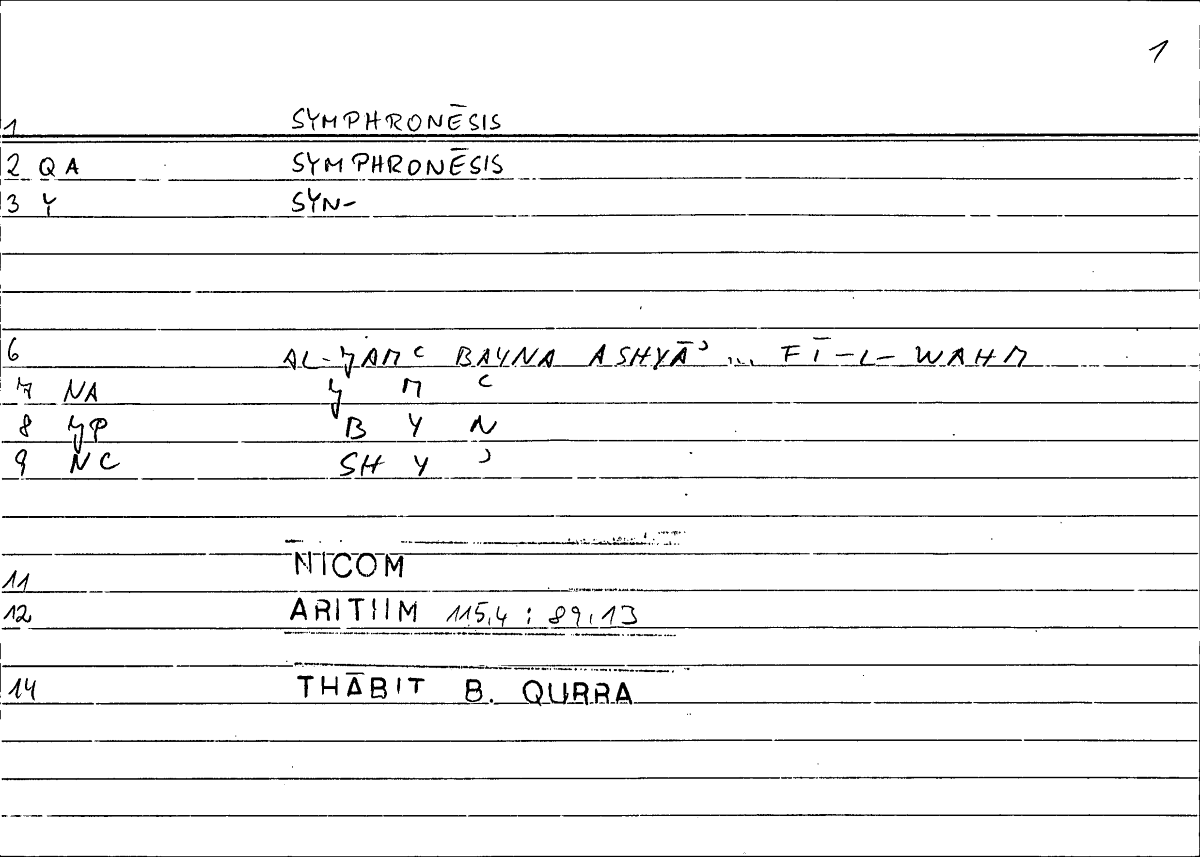 1
1 SYMPHRONĒSIS
2 QA SYMPHRONĒSIS
3 Y SYN-
6 AL-JAMʿ BAYNA ASHYĀʾ ... FĪ-L-WAHM
7 NA J M ʿ
8 JP B Y N
9 NC SH Y ʾ
11 NICOM
12 ARITIIM 115,4 : 89,13
14 THĀBIT B. QURRA